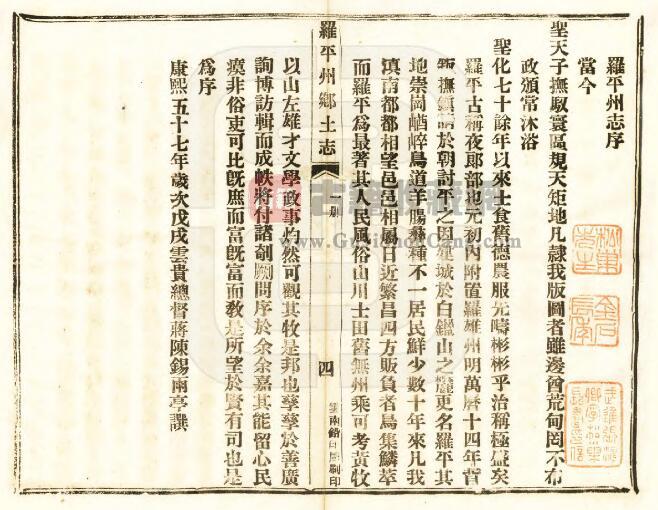 羅平州志序
當今
聖天子撫馭寰區規天矩地凡隸我版圖者雖邊酋荒甸罔不布
政頒常沐浴
聖化七十餘年以來士食舊德農服先疇彬彬乎治稱極盛矣
羅平古稱夜郎部也元初內附置羅雄州明萬曆十四年督
撫鎮請於朝討平之因建城於白臘山之麓更名羅平其
地崇崗峭崪鳥道羊腸彝種不一居民鮮少數十年來凡我
滇南都都相望邑邑相屬日近繁昌四方販負者鳥集鱗萃
而羅平為最著其人民風俗山川土田舊無州乘可考黃牧
以山左雄才文學政事灼然可觀其牧是邦也孳孳於善廣
詢博訪輯而成帙將付諸剞劂問序於余余嘉其能留心民
瘼非俗吏可比既庶而富既富而教是所望於賢有司也是
為序
康熙五十七年歲次戊戌雲貴總督蔣陳錫雨亭譔
羅平州鄉土志
四
雲南
印
www.GuJiShouCang.com